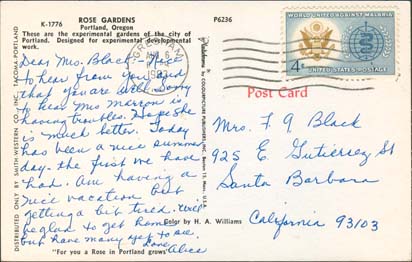 K-1776
ROSE GARDENS
P6236
Portland, Oregon
These are the experimental gardens of the city of
Portland. Designed for experimental developmental
work.
Dear Mrs. Black, Nice
to hear from you and
that you are well. Sorry
to hear Mrs
is having troubles. Hope she
is much better. Today
has been a nice summer
day - the first we have
had. Am having a
nice vacation but
getting a bit tired. Will
be glad to get home
but have many yet to see.
Love
Alice
"For you a Rose in Portland grows"
DISTRIBUTED ONLY BY SMITH WESTERN CO., INC., TACOMA-PORTLAND
COLOURPICTURE PUBLISHERS, INC., Boston 15, Mass., U.S.A.
Color by H. A. Williams
GRESHAM
WORLD UNITED AGAINST MALARIA
4¢
UNITED STATES POSTAGE
Post Card
Mrs. F. G. Black
925 E Gutierrez St
Santa Barbara
California 93103